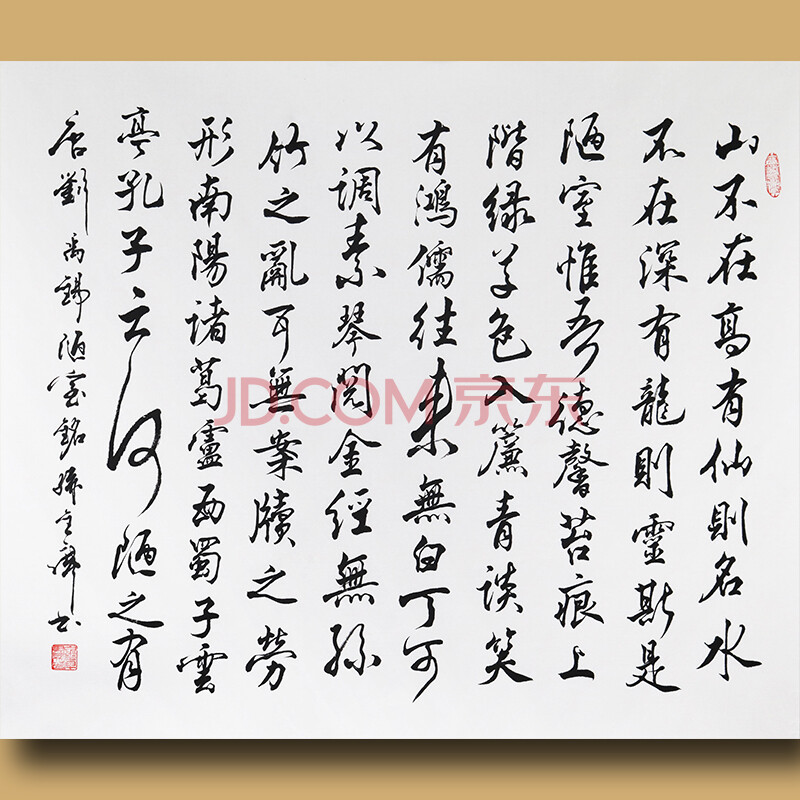 山不在高有仙則名水
不在深有龍則靈斯是
陋室惟吾德馨苔痕上
階绿草色入簾青談笑
有鴻儒往来無白丁可
以调素琴閱金經無絲
竹之亂耳無案牘之勞
形南陽诸葛廬西蜀子雲
亭孔子云何陋之有
唐劉禹錫陋室銘孫金庫书
JD.COM 京东